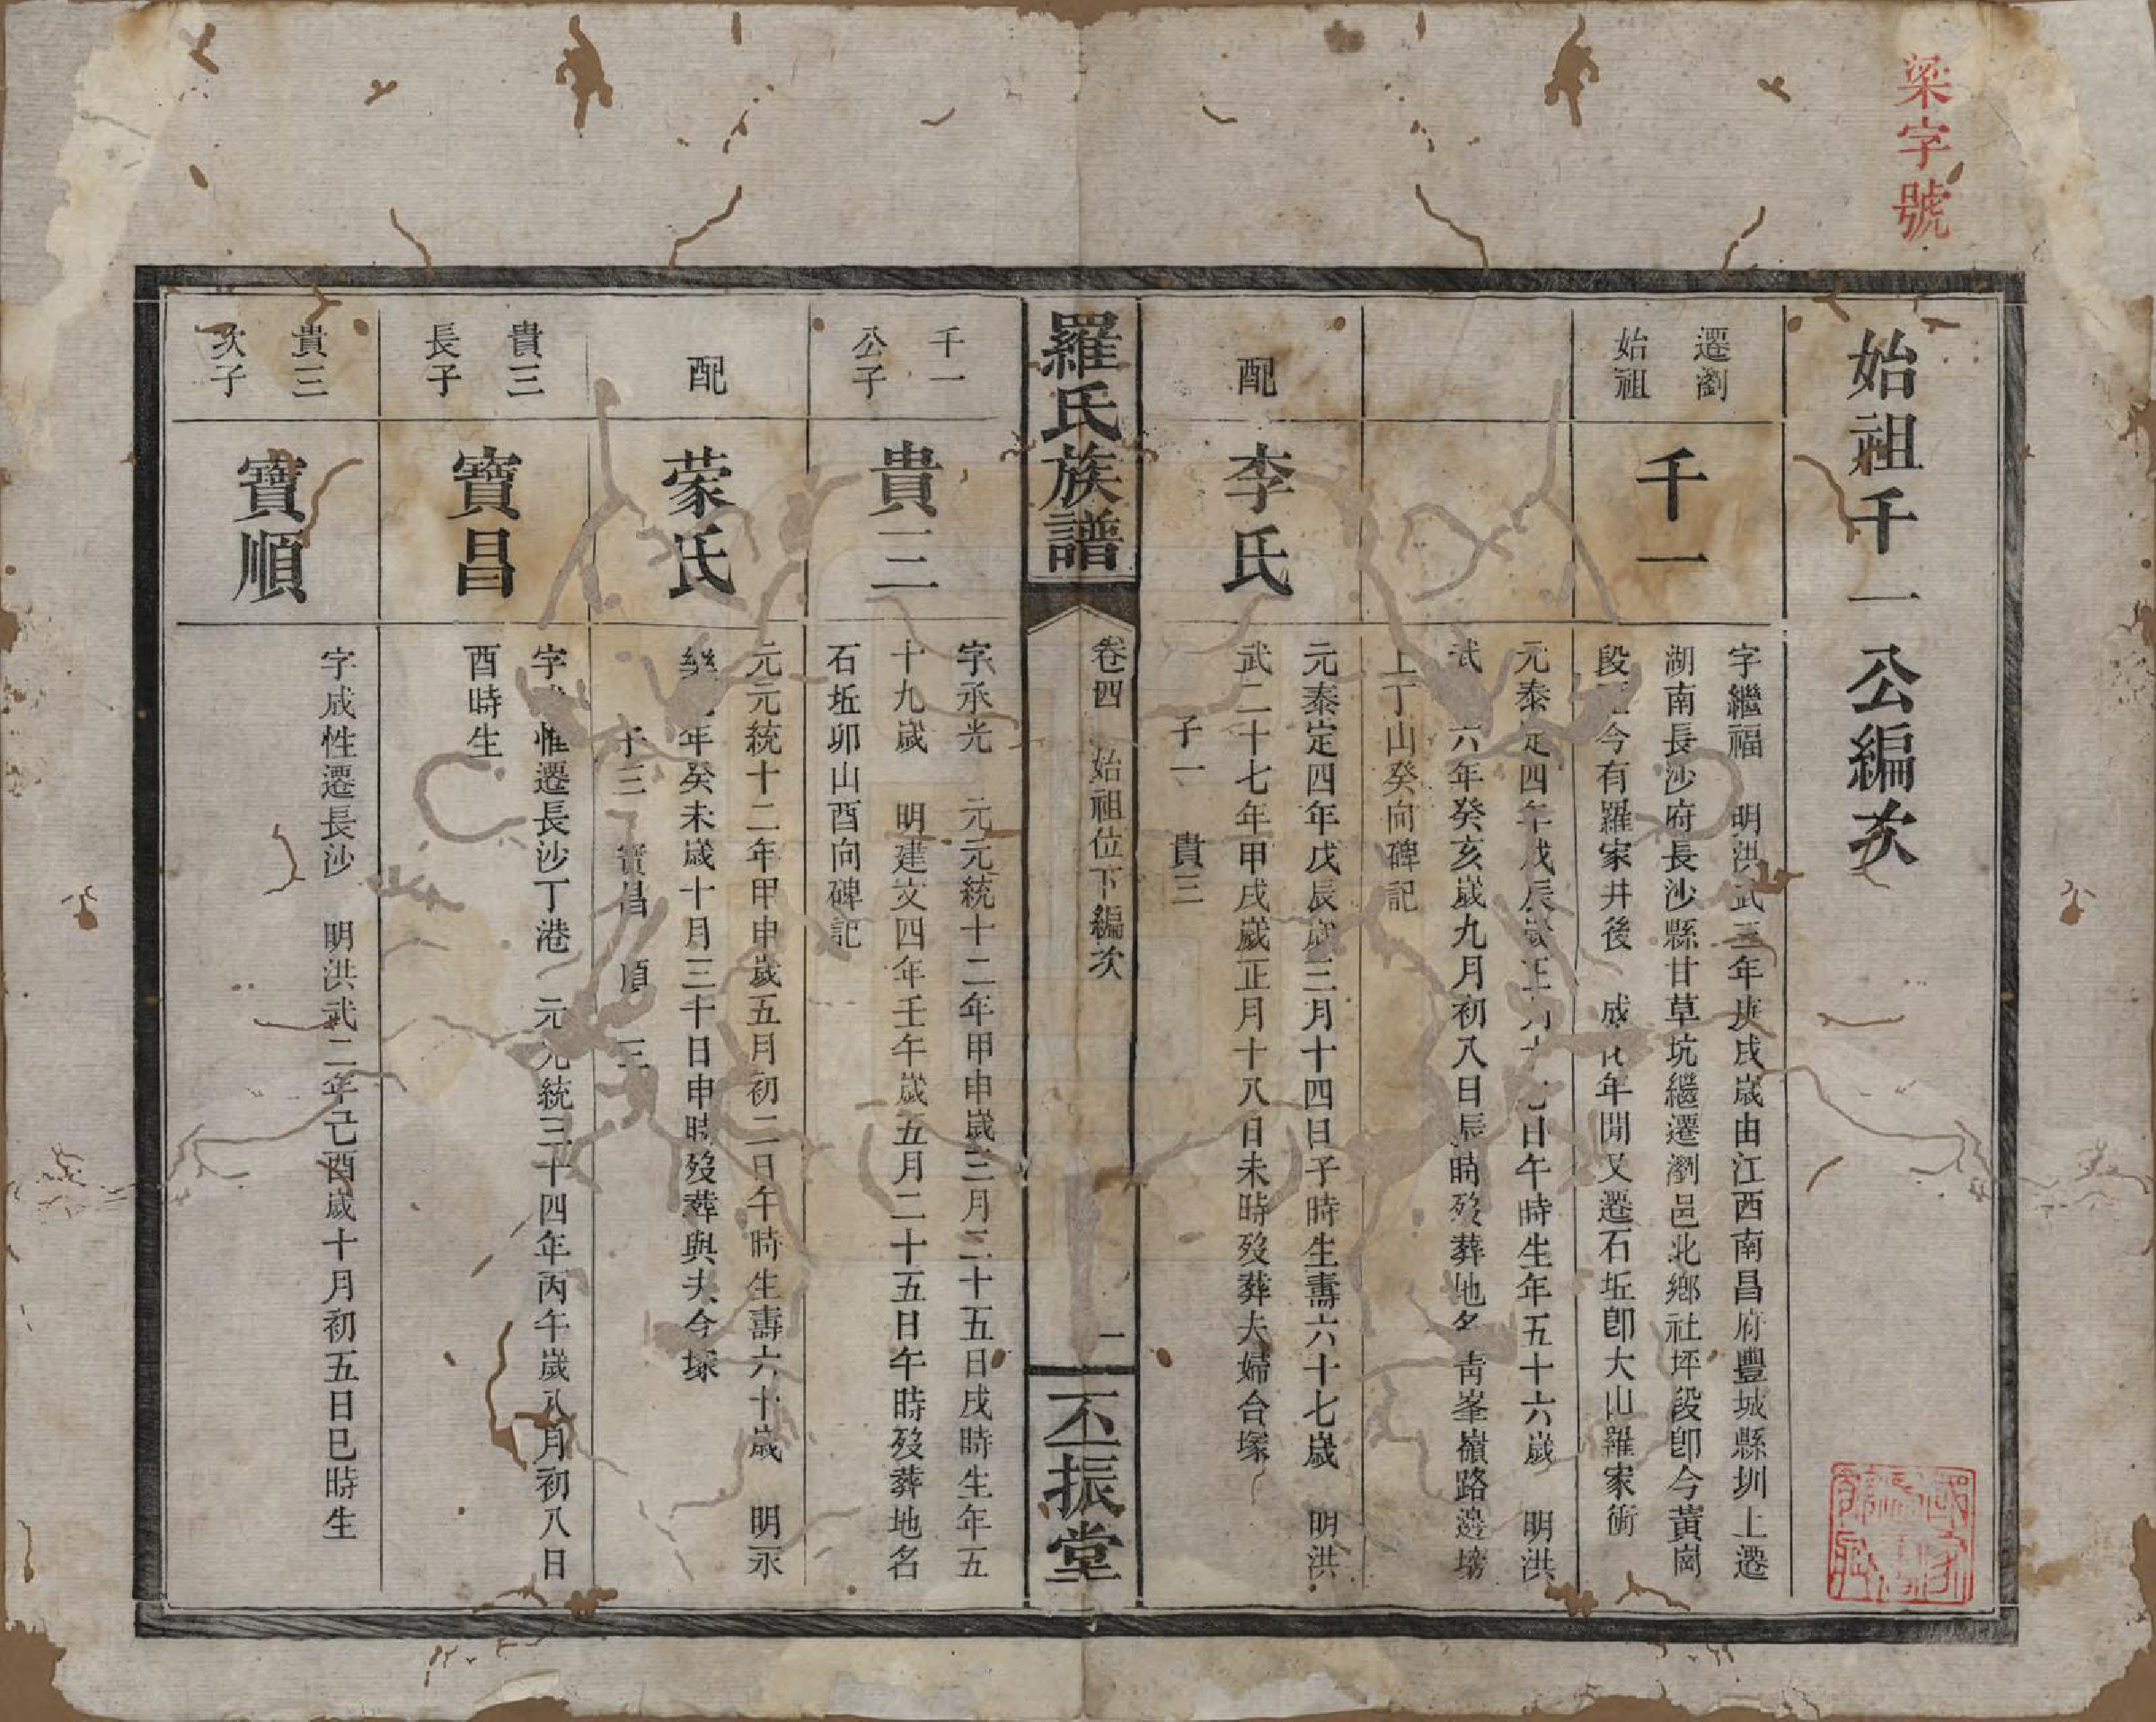 梁字號
始祖千一公編次
遷瀏
始祖
千一
字繼福　明洪武三年庚戌歲由江西南昌府豐城縣圳上遷
湖南長沙府長沙縣甘草坑繼遷瀏邑北鄉社坪段卽今黃崗
段 今有羅家井後　成化年間又遷石坵卽大山羅家衕
元泰定四年戊辰歲正月十 日午時生年五十六歲　明洪
武 六年癸亥歲九月初八日辰時歿葬地名青峯嶺路邊塝
上丁山癸向碑記
配
李氏
元泰定四年戊辰歲三月十四日子時生壽六十七歲　明洪
武二十七年甲戌歲正月十八日未時歿葬夫婦合塚
子一　貴三
羅氏族譜
卷四　始祖位下編次
一
丕振堂
千一
公子
貴三
字承光　元元統十二年甲申歲三月二十五日戌時生年五
十九歲　明建文四年壬午歲五月二十五日午時歿葬地名
石坵卯山酉向碑記
配
蒙氏
元元統十二年甲申歲五月初二日午時生壽六十歲　明永
樂 年癸未歲十月三十日申時歿葬與夫合塚
子三　寶昌　順　三
貴三
長子
寶昌
字 惟遷長沙丁港　元元統三十四年丙午歲八月初八日
酉時生
貴三
次子
寶順
字成性遷長沙　明洪武二年己酉歲十月初五日巳時生